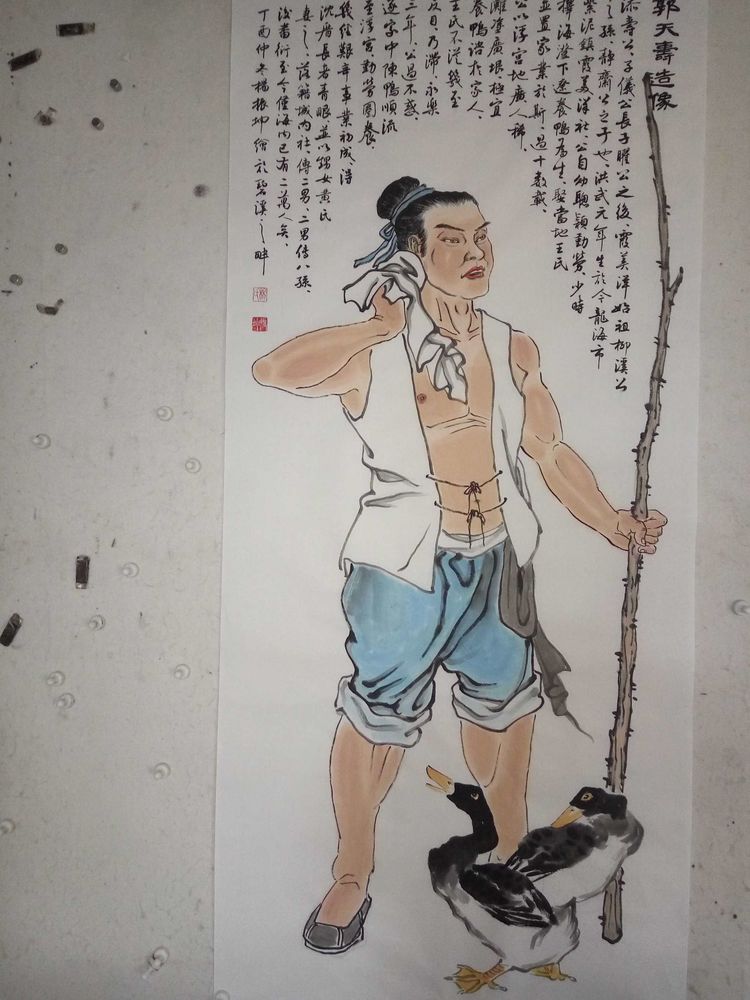 郭天壽造像
添壽公、子儀公長子曜公之後、霞美洋始祖柳溪公
之孫、靜齋公之子也、洪武元年生於今龍海市
紫泥鎮霞美洋社、公自幼聰穎勤勞、少時
海澄下遼養鴨為生、娶當地王氏
並置家業於斯、過十數載、
公以浮宮地廣人稀、
灘塗廣垠、極宜
養鴨、諮於家人、
王氏不從、幾至
反目、乃滯、永樂
三年、公過不惑、
逐字中陳鴨順流
至浮宮、勤勞圈養、
幾經艱辛、事業初成、得
沈厝長者青眼、並以甥女黃氏
妻之、落籍城內社、傳二男、二男傳八孫、
後蕃衍至今僅海內已有二萬人矣、
丁酉仲冬楊振坤繪於碧溪之畔